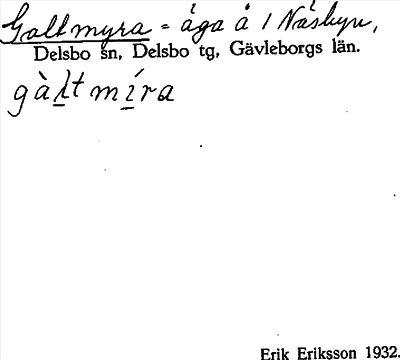 Galtmyra = äga å 1 Näsbyn,
Delsbo sn, Delsbo tg, Gävleborgs län.
gàltmíra
Erik Eriksson 1932.